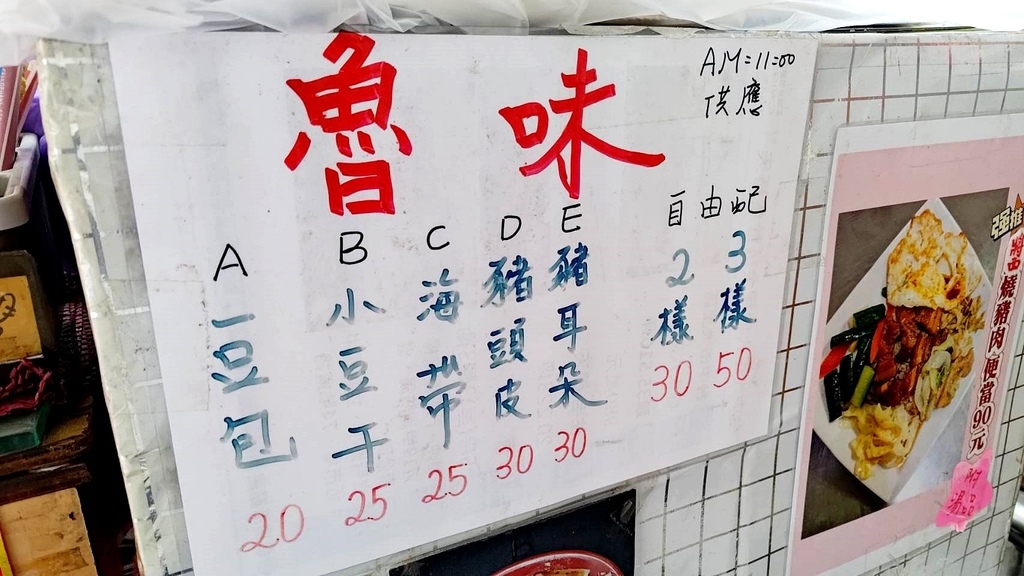 魯味
AM=11=00
供應
A 豆包 20
B 小豆干 25
C 海帶 25
D 豬頭皮 30
E 豬耳朵 30
自由配
2樣 30
3樣 50
強推
燒豬肉便當90元
附湯品